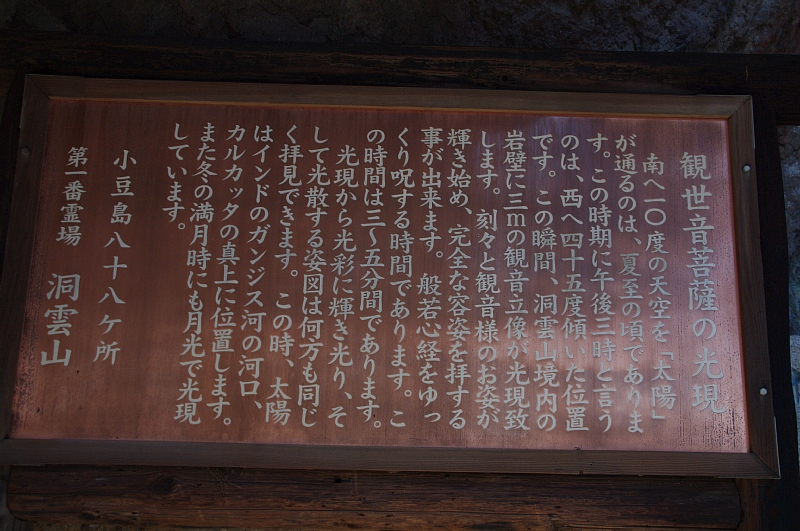 観世音菩薩の光現
南へ一〇度の天空を「太陽」
が通るのは、夏至の頃でありま
す。この時期に午後三時と言う
のは、西へ四十五度傾いた位置
です。この瞬間、洞雲山境内の
岩壁に三mの観音立像が光現致
します。刻々と観音様のお姿が
輝き始め、完全な容姿を拝する
事が出来ます。般若心経をゆっ
くり呪する時間であります。こ
の時間は三〜五分間であります。
光現から光彩に輝き光り、そ
して光散する姿図は何方も同じ
く拝見できます。この時、太陽
はインドのガンジス河の河口、
カルカッタの真上に位置します。
また冬の満月時にも月光で光現
しています。
小豆島八十八ケ所
第一番霊場 洞雲山